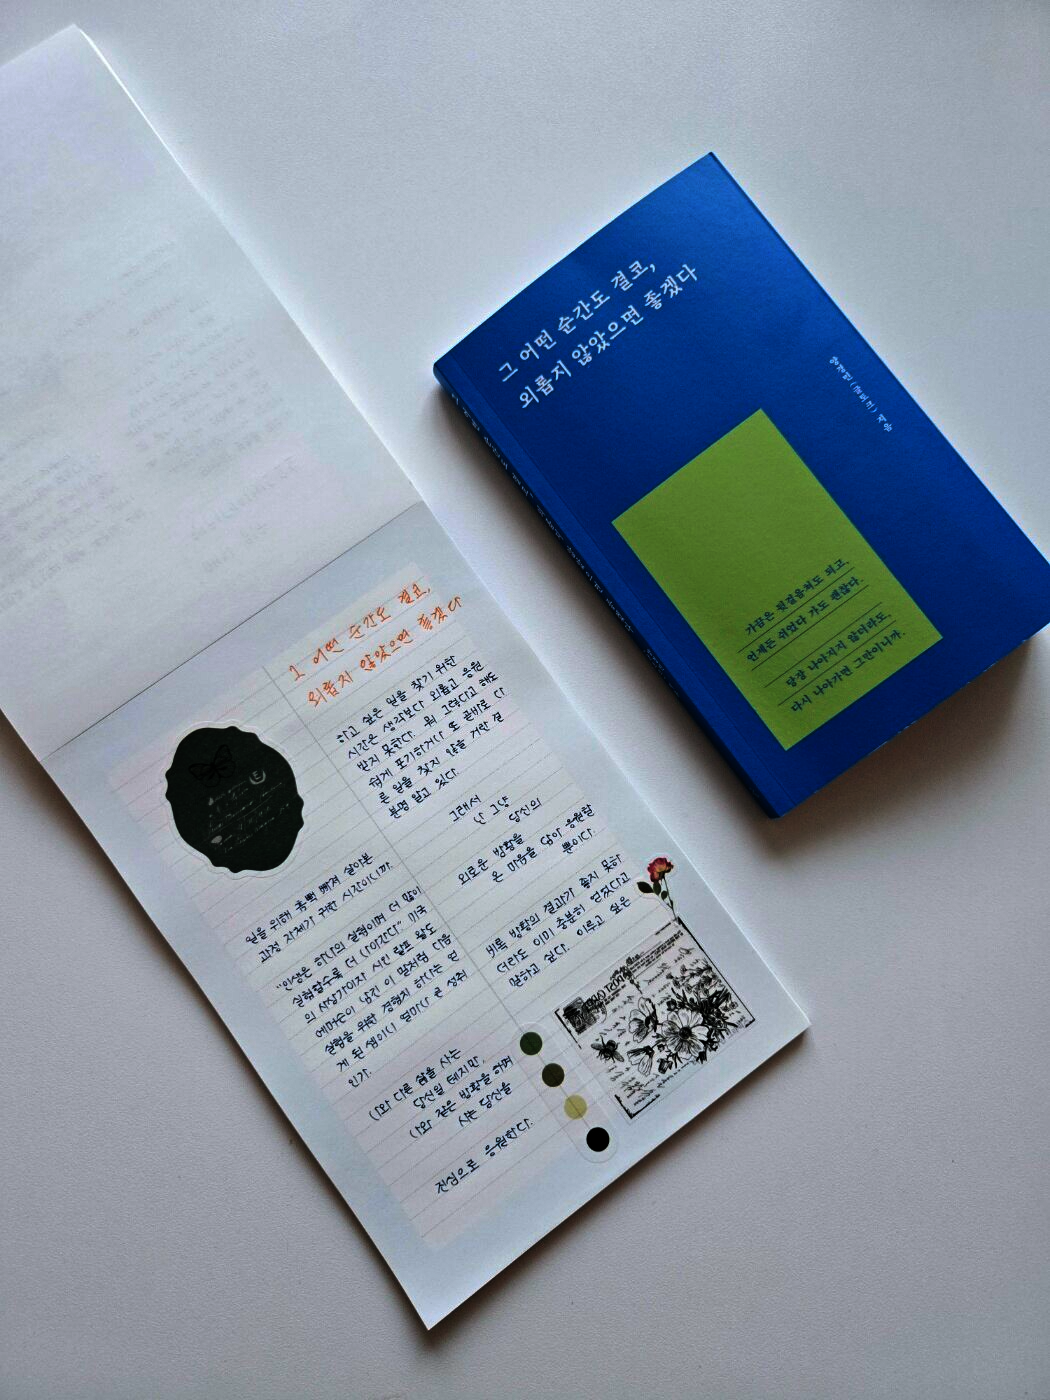 그 어떤 순간도 결코,
외롭지 않았으면 좋겠다
하고 싶은 일을 찾기 위한
시간은 생각보다 외롭고 응원
받지 못한다. 뭐 그렇다고 해도
쉽게 포기하거나 또 곧바로 다
른 일을 찾지 않을 거란 걸
분명 알고 있다.
그래서
난 그냥
당신의
외로운 방황을
온 마음을 담아 응원할
뿐이다.
비록 방황의 결과가 좋지 못하
더라도 이미 충분히 얻었다고
말하고 싶다. 이루고 싶은
일을 위해 흠뻑 빠져 살아본
과정 자체가 귀한 시간이니까.
"인생은 하나의 실험이며 더 많이
실험할수록 더 나아간다." 미국
의 사상가이자 시인 랄프 왈도
에머슨이 남긴 이 말처럼 다음
실험을 위한 경험치 하나는 얻
게 된 셈이니 얼마나 큰 성취
인가.
나와 다른 삶을 사는
당신일 테지만,
나와 같은 방황을 하며
사는 당신을
진심으로 응원한다.
POST CARD
그 어떤 순간도 결코,
외롭지 않았으면 좋겠다
양경민(글토크) 지음
가끔은 뒷걸음쳐도 되고,
언제든 쉬었다 가도 괜찮다.
당장 나아지지 않더라도,
다시 나아가면 그만이니까.
그 어떤 순간도 결코, 외롭지 않았으면 좋겠다